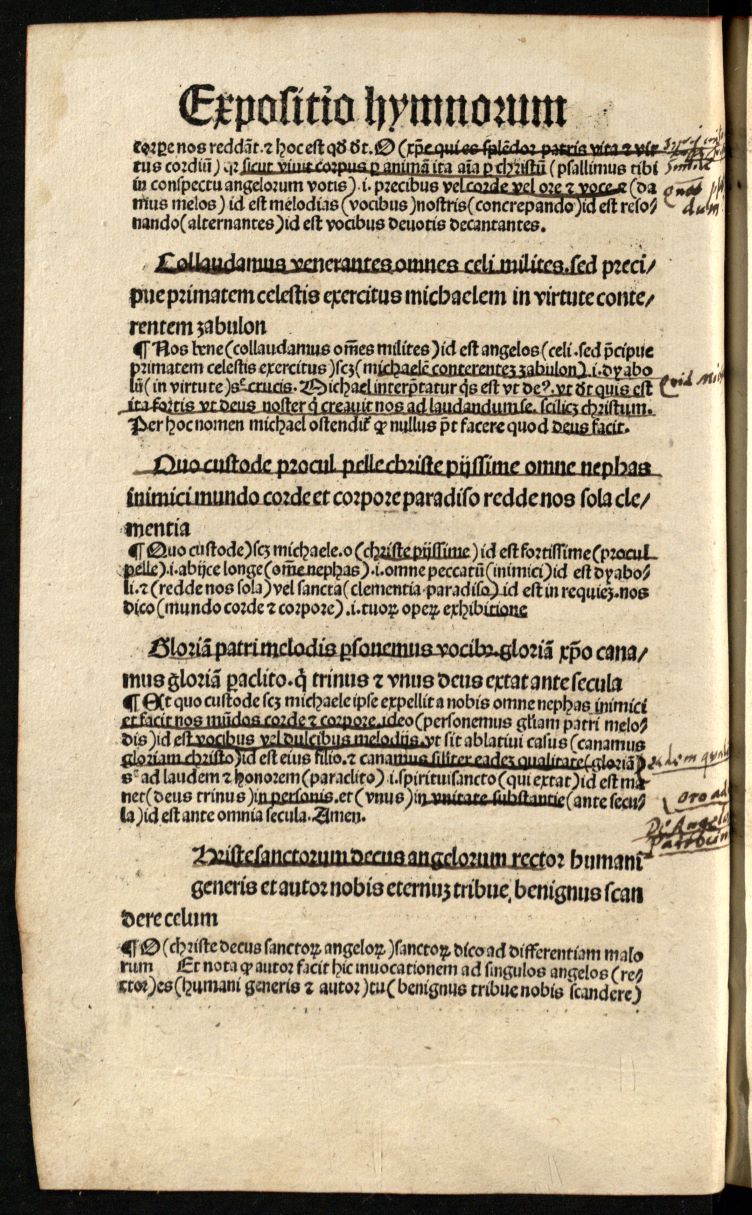 Expositio hymnorum
corpore nos reddāt. ⁊ hoc est qđ dt̄. O (xp̄e qui es splēdor patris vita ⁊ vir
tus cordiū) qꝛ sicut viuit corpus ꝑ animā ita aīa ꝑ christū (psallimus tibi
in conspectu angelorum votis) .i. precibus vel corde vel ore ⁊ voce ⁊ (da
mus melos) id est melodias (vocibus) nostris (concrepando) id est reso⸗
nando (alternantes) id est vocibus deuotis decantantes.
Collaudamus venerantes omnes celi milites. sed preci/
pue primatem celestis exercitus michaelem in virtute conte/
rentem zabulon
¶ Nos bene (collaudamus om̄es milites) id est angelos (celi. sed p̄cipue
primatem celestis exercitus) scꝫ (michaelē conterenteꝫ zabulon) .i. dyabo
lū (in virtute) sᶜ crucis. Michael interp̄tatur q̇s est vt deꝰ. vt dt̄ quis est
ita fortis vt deus noster q̇ creauit nos ad laudandum se. scilicꝫ christum.
Per hoc nomen michael ostendit᷑ ꝙ nullus pt̄ facere quod deus facit.
Quo custode procul pelle christe pijssime omne nephas
inimici mundo corde et corpore paradiso redde nos sola cle/
mentia
¶ Quo custode) scꝫ michaele. o (christe pijssime) id est fortissime (procul
pelle) .i. abijce longe (om̄e nephas) .i. omne peccatū (inimici) id est dyabo⸗
li. ⁊ (redde nos sola) vel sancta (clementia paradiso) id est in requieꝫ. nos
dico (mundo corde ⁊ corpore) .i. tuoꝝ operꝝ exhibitione
Gloriā patri melodis ꝑsonemus vocibꝰ. gloriā xp̄o cana/
mus gloriā ꝑaclito. q̇ trinus ⁊ vnus deus extat ante secula
¶ Et quo custode scꝫ michaele ipse expellit a nobis omne nephas inimici
et facit nos mūdos corde ⁊ corpore. ideo (personemus gl̄iam patri melo⸗
dis) id est vocibus vel dulcibus melodijs. vt sit ablatiui casus (canamus
gloriam christo) id est eius filio. ⁊ canamus siliter eadeꝫ qualitate (gloriā)
sᶜ ad laudem ⁊ honorem (paraclito) .i. spirituisancto (qui extat) id est ma
net (deus trinus) in personis. et (vnus) in vnitate substantie (ante secu⸗
la) id est ante omnia secula. Amen.
Hriste sanctorum decus angelorum rector humani
generis et autor nobis eternuꝫ tribue, benignus scan
dere celum
¶ O (christe decus sanctoꝝ angeloꝝ) sanctoꝝ dico ad differentiam malo
rum Et nota ꝙ autor facit hic inuocationem ad singulos angelos (re⸗
ctor) es (humani generis ⁊ autor) tu (benignus tribue nobis scandere)